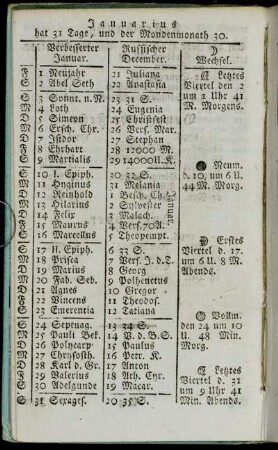 Januarius
hat 31 Tage, und der Mondenmonath 30.
Verbesserter Januar. Russischer December. ☽ Wechsel.
F 1 Neujahr 21 Juliana ☾ Letztes
S 2 Abel Seth 22 Anastasia Viertel den 2
S 3 Sonnt. n. N. 23 31 S. um 2 Uhr 41
M 4 Loth 24 Eugenia M. Morgens.
D 5 Simeon 25 Christfest
M 6 Ersch. Chr. 26 Vers. Mar.
D 7 Isidor 27 Stephan
F 8 Ehrhart 28 12000 M.
S 9 Martialis 29 14000 U. K.
S 10 I. Epiph. 30 32 S. ● Neum.
M 11 Hyginus 31 Melania d. 10, um 6 U.
D 12 Reinhold 1 Besch. Ch. 44 M. Morg.
M 13 Hilarius 2 Sylvester
D 14 Felix 3 Malach.
F 15 Maurus 4 Vers. 70 A.
S 16 Marcellus 5 Theopempt.
Januar.
S 17 II. Epiph. 6 33 S. ☽ Erstes
M 18 Prisca 7 Vers. J. d. T. Viertel d. 17.
D 19 Marius 8 Georg um 6 U. 8 M.
M 20 Fab. Seb. 9 Polheuctus Abends.
D 21 Agnes 10 Gregor
F 22 Vincens 11 Theodos.
S 23 Emerentia 12 Tatiana
S 24 Septuag. 13 34 S. Vollm.
M 25 Pauli Bek. 14 V. d. B. S. den 24 um 10
D 26 Polycarp 15 Paulus U. 48 Min.
M 27 Chrysosth. 16 Petr. K. Morg.
D 28 Karl d. Gr. 17 Anton ☾ Letztes
F 29 Valerius 18 Ath. Cyr. Viertel d. 31
S 30 Adelgunde 19 Macar. um 9 Uhr 41
S 31 Sexages. 20 35 S. Min. Abends.